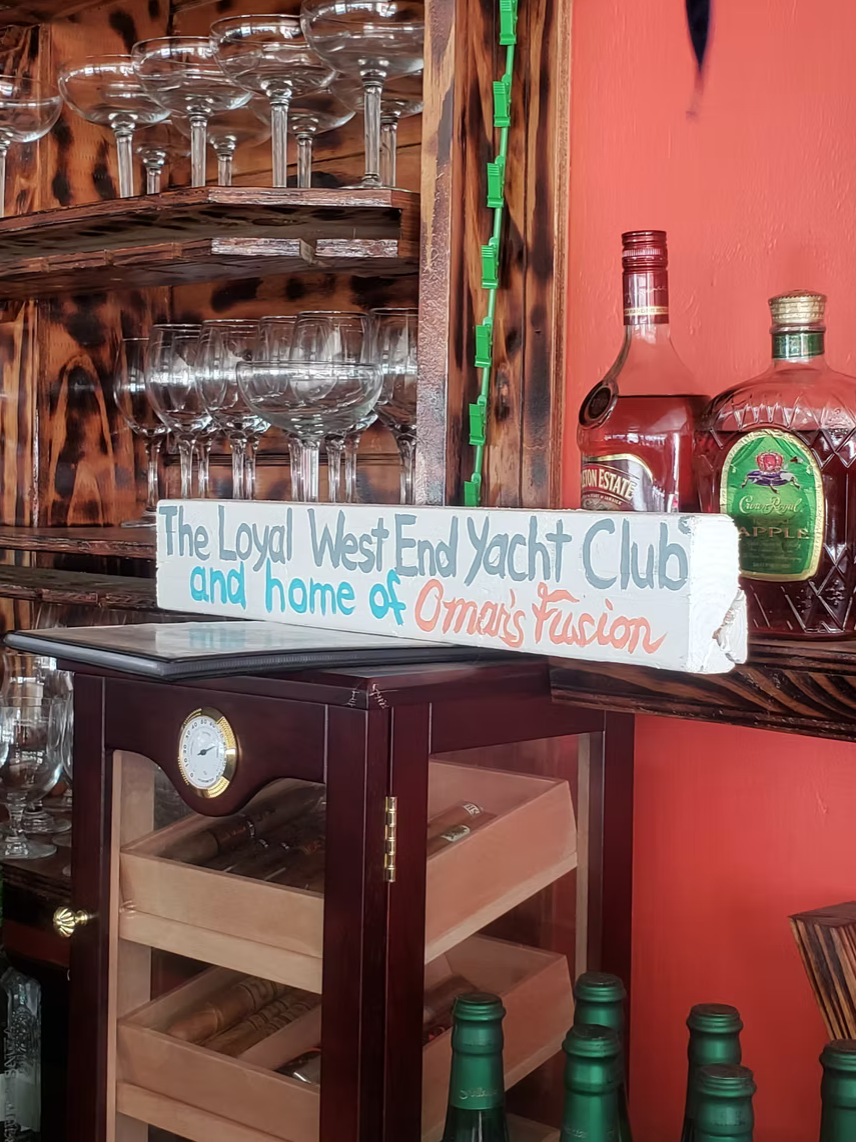 The Loyal West End Yacht Club
and home of Omar's Fusion
TON ESTATE
Crown Royal
APPLE